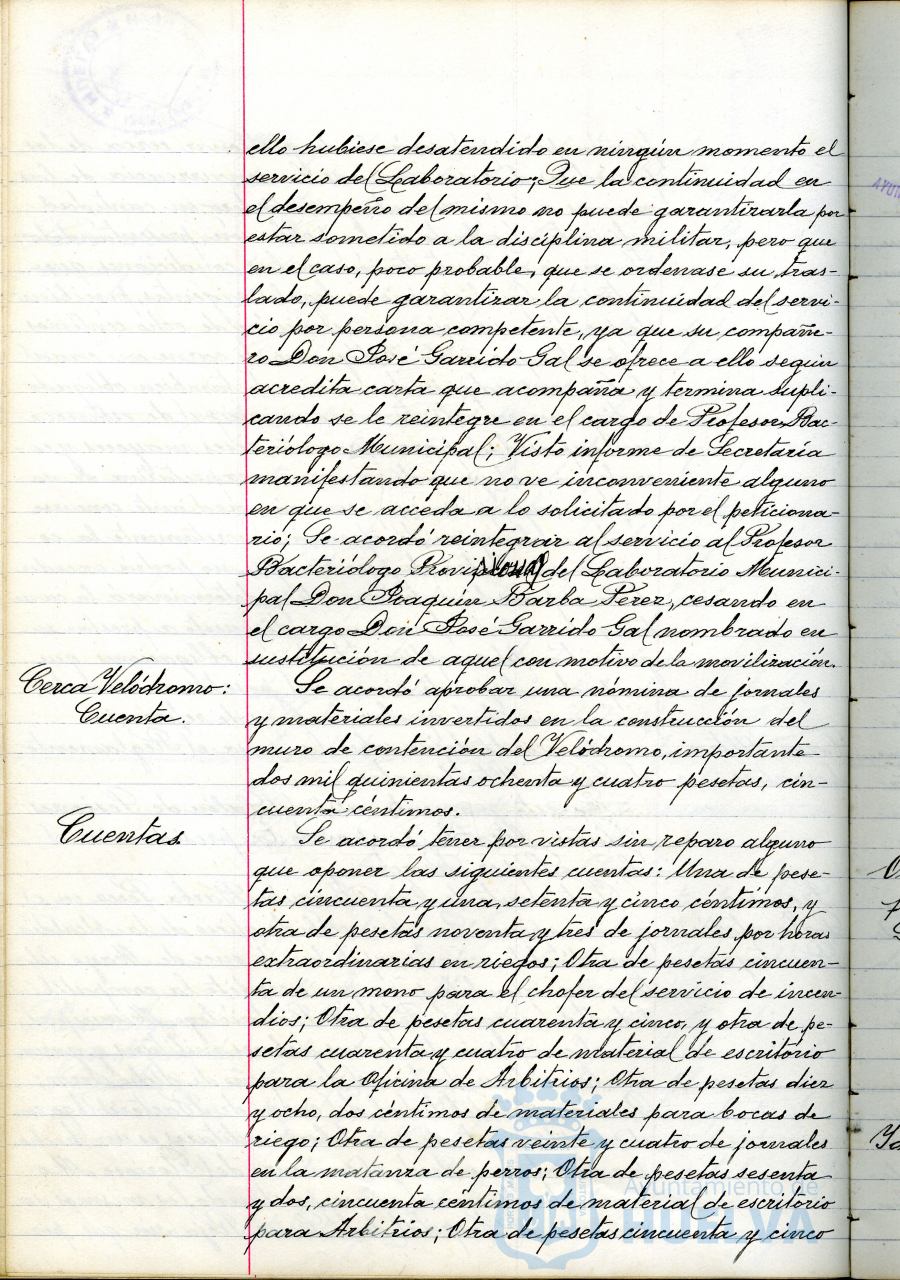 ello hubiese desatendido en ningún momento el
servicio del Laboratorio; Que la continuidad en
el desempeño del mismo no puede garantizarla por
estar sometido a la disciplina militar, pero que
en el caso, poco probable, que se ordenase su tras-
lado, puede garantizar la continuidad del servi-
cio por persona competente, ya que su compañe-
ro Don José Garrido Gal se ofrece a ello según
acredita carta que acompaña y termina supli-
cando se le reintegre en el cargo de Profesor Bac-
teriólogo Municipal; Visto informe de Secretaría
manifestando que no ve inconveniente alguno
en que se acceda a lo solicitado por el peticiona-
rio; Se acordó reintegrar al servicio al Profesor
Bacteriólogo Provisional del Laboratorio Munici-
pal Don Joaquín Barba Perez, cesando en
el cargo Don José Garrido Gal nombrado en
sustitución de aquel con motivo de la movilización.
Cerca Velódromo:
Cuenta.
Se acordó aprobar una nómina de jornales
y materiales invertidos en la construcción del
muro de contención del Velódromo, importante
dos mil quinientas ochenta y cuatro pesetas, cin-
cuenta céntimos.
Cuentas
Se acordó tener por vistas sin reparo alguno
que oponer las siguientes cuentas: Una de pese-
tas cincuenta y una, setenta y cinco céntimos, y
otra de pesetas noventa y tres de jornales por horas
extraordinarias en riegos; Otra de pesetas cincuen-
ta de un mono para el chofer del servicio de incen-
dios; Otra de pesetas cuarenta y cinco, y otra de pe-
setas cuarenta y cuatro de material de escritorio
para la Oficina de Arbitrios; Otra de pesetas diez
y ocho, dos céntimos de materiales para bocas de
riego; Otra de pesetas veinte y cuatro de jornales
en la matanza de perros; Otra de pesetas sesenta
y dos, cincuenta céntimos de material de escritorio
para Arbitrios; Otra de pesetas cincuenta y cinco
Ayuntamiento de
HUELVA